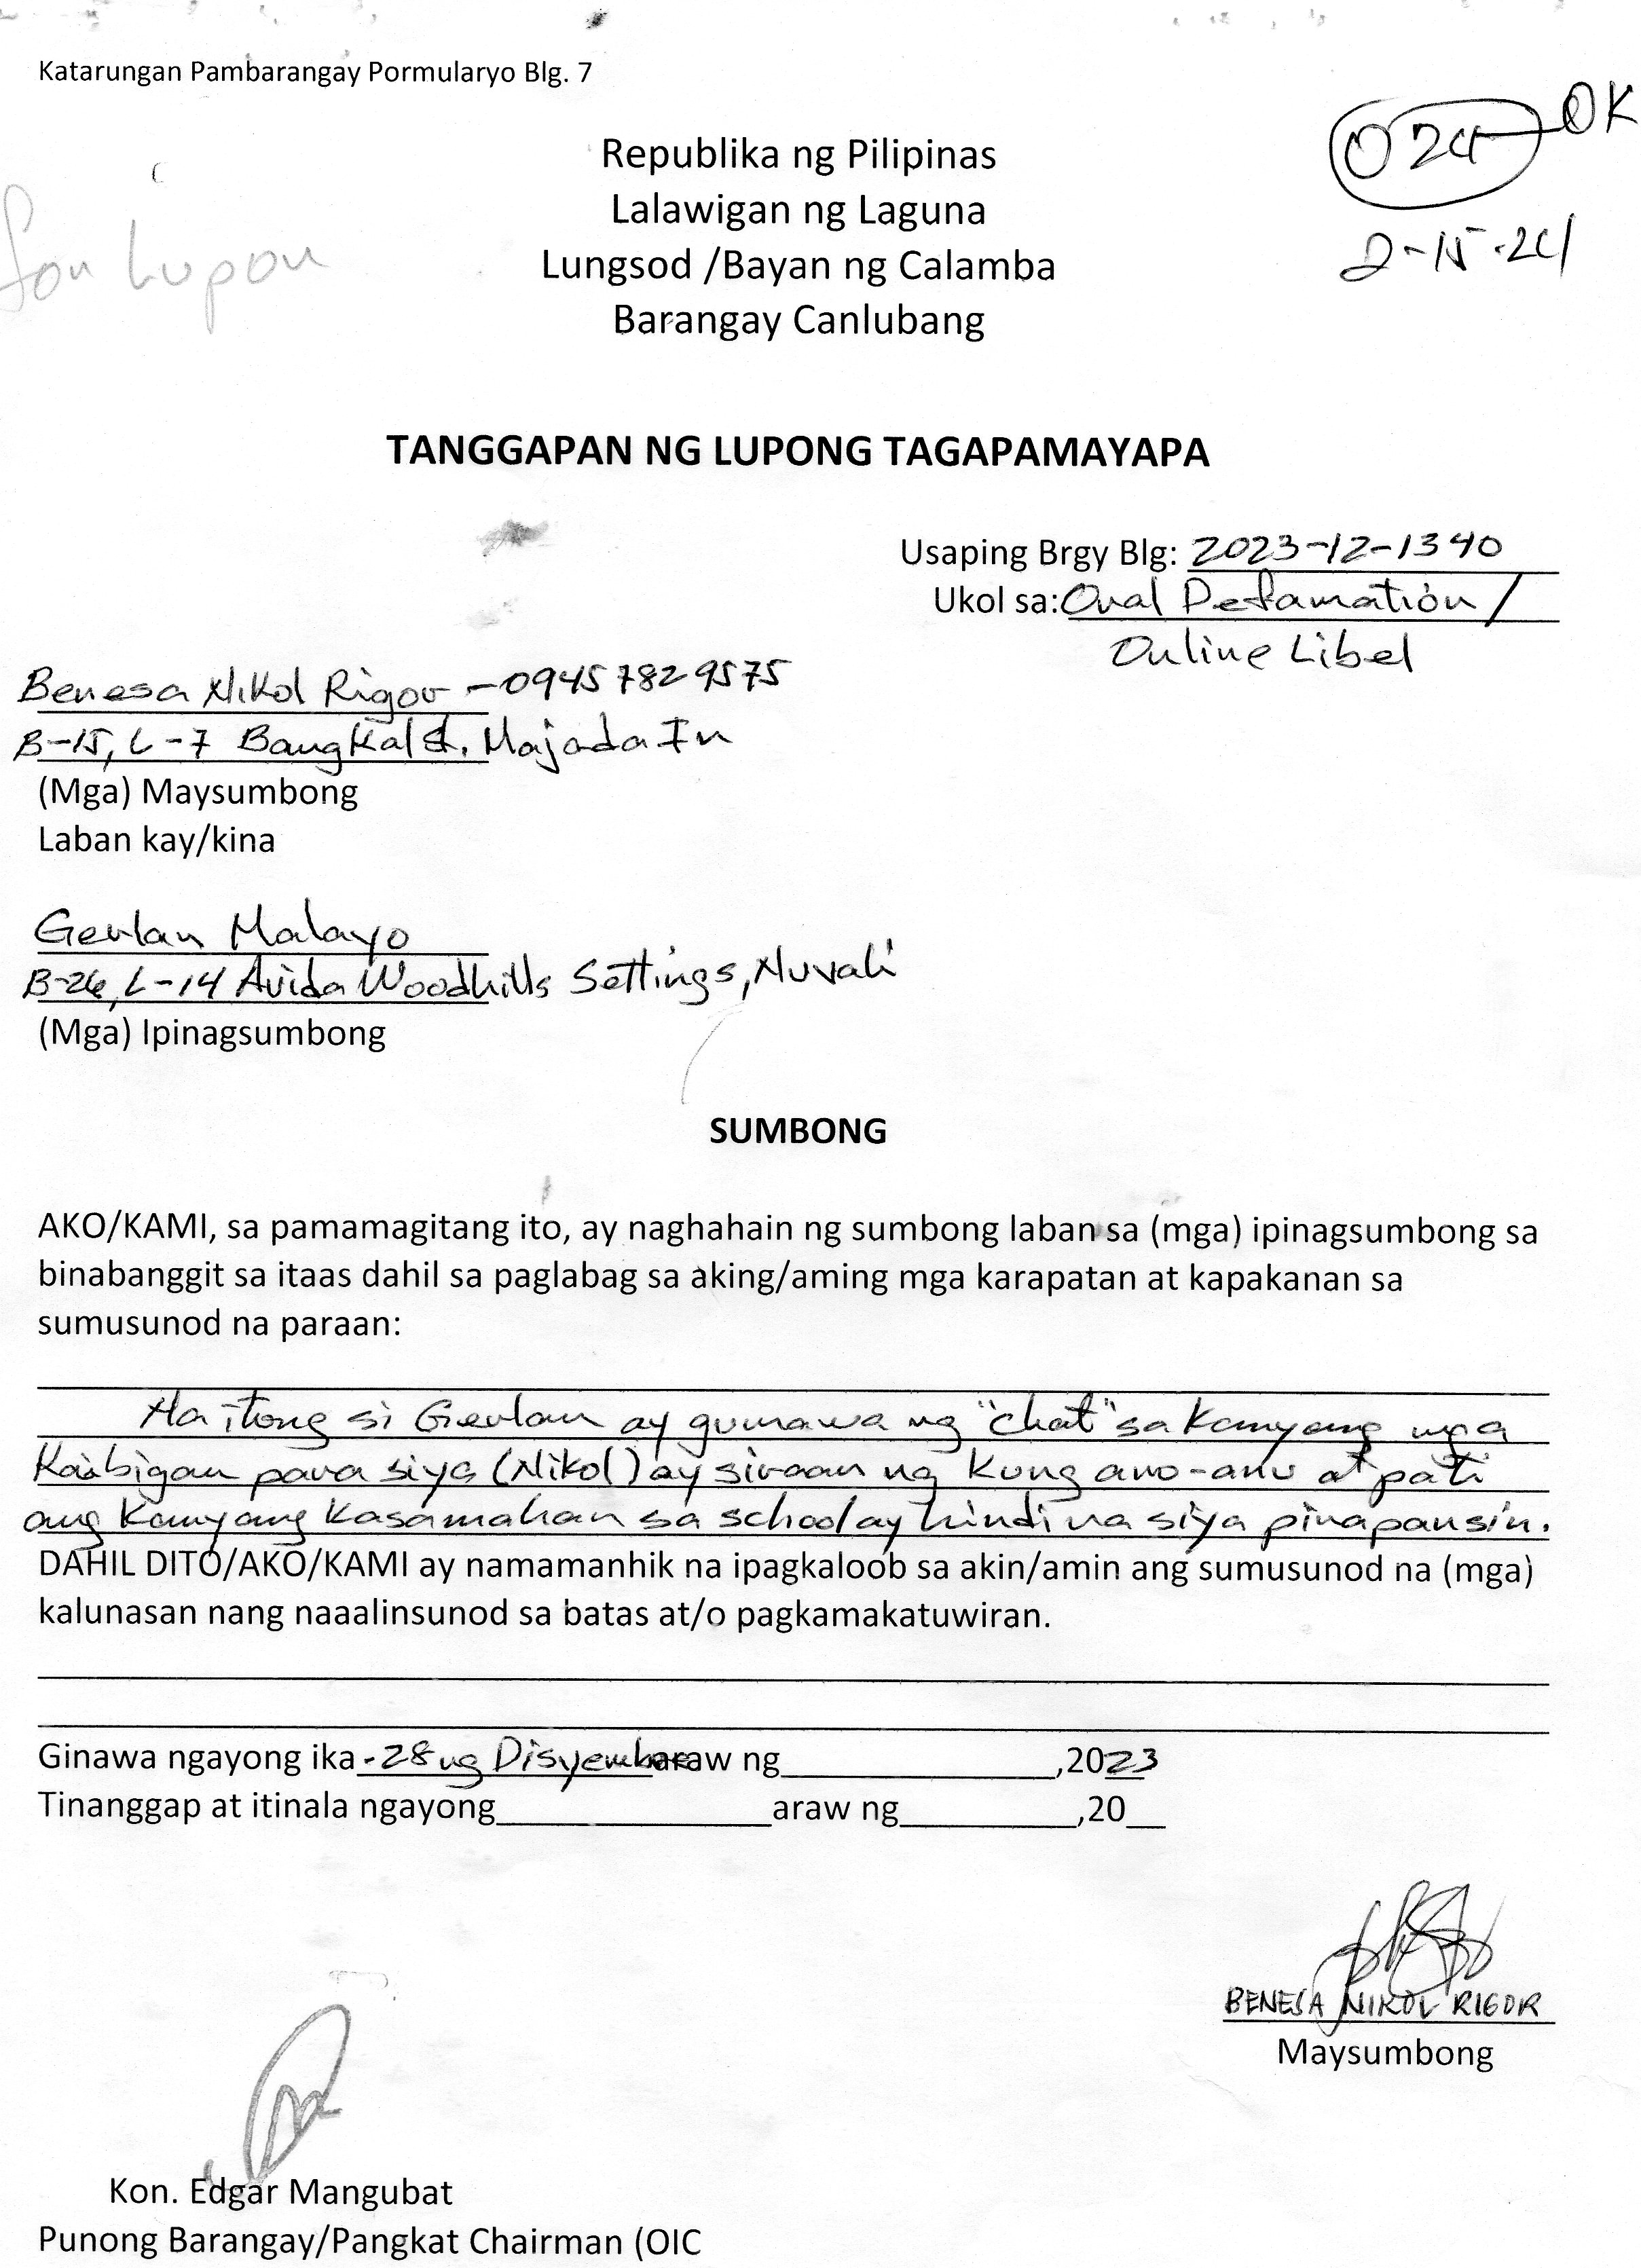 Katarungan Pambarangay Pormularyo Blg. 7
024 OK
2-15-24
for Lupon
Republika ng Pilipinas
Lalawigan ng Laguna
Lungsod /Bayan ng Calamba
Barangay Canlubang
TANGGAPAN NG LUPONG TAGAPAMAYAPA
Usaping Brgy Blg: 2023-12-1340
Ukol sa: Oral Defamation /
Online Libel
Benesa Nikol Rigor - 09457829575
B-15, L-7 Bangkal St. Majada In
(Mga) Maysumbong
Laban kay/kina
Gerlan Malayo
B-26, L-14 Avida Woodhills Settings, Nuvali
(Mga) Ipinagsumbong
SUMBONG
AKO/KAMI, sa pamamagitang ito, ay naghahain ng sumbong laban sa (mga) ipinagsumbong sa
binabanggit sa itaas dahil sa paglabag sa aking/aming mga karapatan at kapakanan sa
sumusunod na paraan:
Na itong si Gerlan ay gumawa ng "chat" sa kanyang mga
Kaibigan para siya (Nikol) ay siraan ng kung ano-anu at pati
ang kanyang kasamahan sa school ay hindi na siya pinapansin.
DAHIL DITO/AKO/KAMI ay namamanhik na ipagkaloob sa akin/amin ang sumusunod na (mga)
kalunasan nang naaalinsunod sa batas at/o pagkamakatuwiran.
Ginawa ngayong ika-28 ng Disyembre araw ng ,2023
Tinanggap at itinala ngayong araw ng ,20
BENESA NIKOL RIGOR
Maysumbong
Kon. Edgar Mangubat
Punong Barangay/Pangkat Chairman (OIC